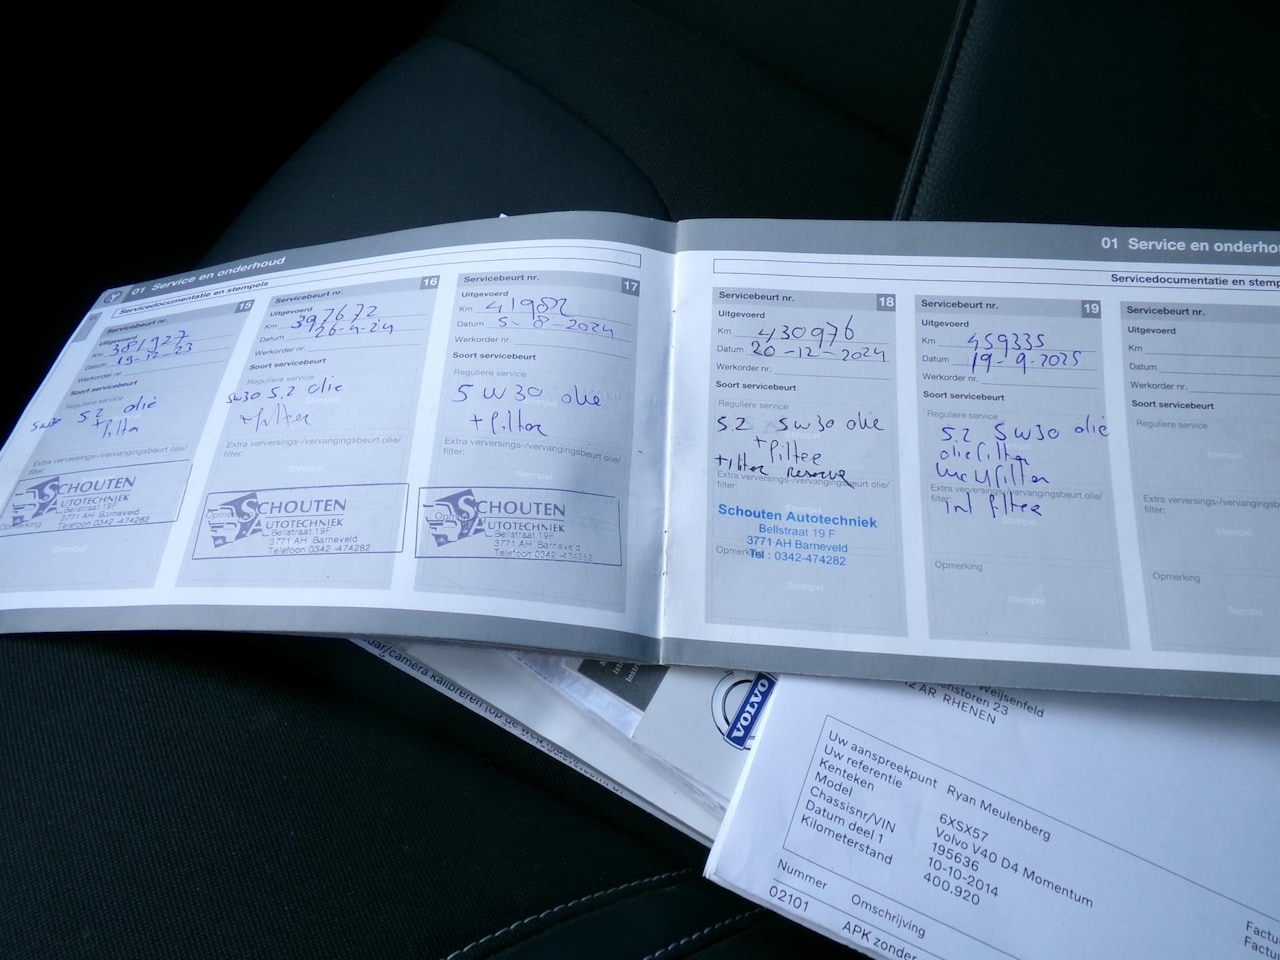 01 Service en onderhoud
Servicedocumentatie en stempels
Servicebeurt nr. 15
Uitgevoerd
Km 381927
Datum 19-12-23
Werkorder nr.
Soort servicebeurt
Reguliere service
5w30 5.2 olie
+ filter
Extra verversings-/vervangingsbeurt olie/
filter:
SCHOUTEN
AUTOTECHNIEK
Bellstraat 19F
3771 AH Barneveld
Telefoon 0342-474282
Opmerking
Stempel
Servicebeurt nr. 16
Uitgevoerd
Km 397672
Datum 26-4-24
Werkorder nr.
Soort servicebeurt
Reguliere service
5w30 5.2 olie
+ filter
Extra verversings-/vervangingsbeurt olie/
filter:
Stempel
SCHOUTEN
AUTOTECHNIEK
Bellstraat 19F
3771 AH Barneveld
Telefoon 0342-474282
Servicebeurt nr. 17
Uitgevoerd
Km 41982
Datum 5-8-2024
Werkorder nr.
Soort servicebeurt
Reguliere service
5W30 olie
+ filter
Extra verversings-/vervangingsbeurt olie/
filter:
Stempel
SCHOUTEN
AUTOTECHNIEK
Bellstraat 19F
3771 AH Barneveld
Telefoon 0342-474282
01 Service en onderhou
Servicedocumentatie en stemp
Servicebeurt nr. 18
Uitgevoerd
Km 430976
Datum 20-12-2024
Werkorder nr.
Soort servicebeurt
Reguliere service
5.2 5w30 olie
+ filter
+ filter
Extra verversings-/vervangingsbeurt olie/
filter:
Schouten Autotechniek
Bellstraat 19 F
3771 AH Barneveld
Tel : 0342-474282
Stempel
Servicebeurt nr. 19
Uitgevoerd
Km 459335
Datum 19-9-2025
Werkorder nr.
Soort servicebeurt
Reguliere service
5.2 5w30 olie
oliefilter
luchtfilter
Extra verversings-/vervangingsbeurt olie/
filter:
int filter
Opmerking
Stempel
Servicebeurt nr.
Uitgevoerd
Km
Datum
Werkorder nr.
Soort servicebeurt
Reguliere service
Stempel
Extra verversings-/vervanging
filter:
Opmerking
Stempel
VOLVO
Weijsenfeld
AR RHENEN
Uw aanspreekpunt Ryan Meulenberg
Uw referentie
Kenteken 6XSX57
Model Volvo V40 D4 Momentum
Chassisnr/VIN 195636
Datum deel 1 10-10-2014
Kilometerstand 400.920
Nummer Omschrijving
02101 APK zonder
Factu
Factu